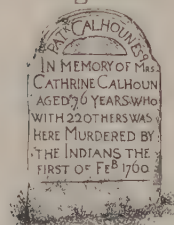 PATK CALHOUN ESQ
IN MEMORY OF MRS
CATHRINE CALHOUN
AGED 76 YEARS WHO
WITH 22 OTHERS WAS
HERE MURDERED BY
THE INDIANS THE
FIRST OF FEB 1760